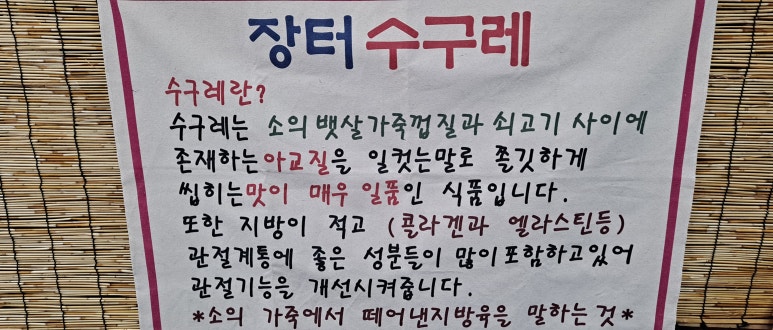 장터 수구레
수구레란?
수구레는 소의 뱃살가죽껍질과 쇠고기 사이에
존재하는아교질을 일컷는말로 쫄깃하게
씹히는맛이 매우 일품인 식품입니다.
또한 지방이 적고 (콜라겐과 엘라스틴등)
관절계통에 좋은 성분들이 많이포함하고있어
관절기능을 개선시켜줍니다.
*소의 가죽에서 떼어낸지방육을 말하는것*